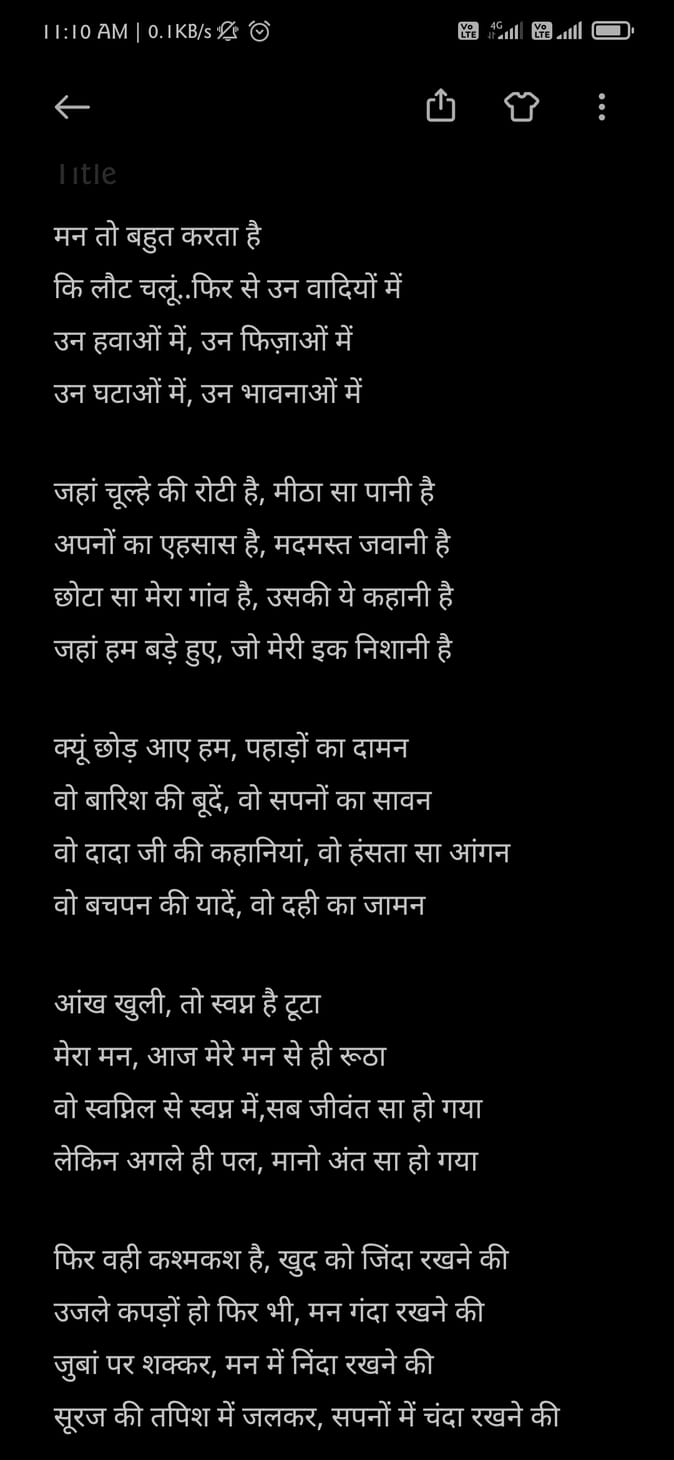 11:10 AM | 0.1KB/s
Vo LTE 4G Vo LTE
Title
मन तो बहुत करता है
कि लौट चलूं..फिर से उन वादियों में
उन हवाओं में, उन फिज़ाओं में
उन घटाओं में, उन भावनाओं में
जहां चूल्हे की रोटी है, मीठा सा पानी है
अपनों का एहसास है, मदमस्त जवानी है
छोटा सा मेरा गांव है, उसकी ये कहानी है
जहां हम बड़े हुए, जो मेरी इक निशानी है
क्यूं छोड़ आए हम, पहाड़ों का दामन
वो बारिश की बूदें, वो सपनों का सावन
वो दादा जी की कहानियां, वो हंसता सा आंगन
वो बचपन की यादें, वो दही का जामन
आंख खुली, तो स्वप्न है टूटा
मेरा मन, आज मेरे मन से ही रूठा
वो स्वप्निल से स्वप्न में,सब जीवंत सा हो गया
लेकिन अगले ही पल, मानो अंत सा हो गया
फिर वही कश्मकश है, खुद को जिंदा रखने की
उजले कपड़ों हो फिर भी, मन गंदा रखने की
जुबां पर शक्कर, मन में निंदा रखने की
सूरज की तपिश में जलकर, सपनों में चंदा रखने की